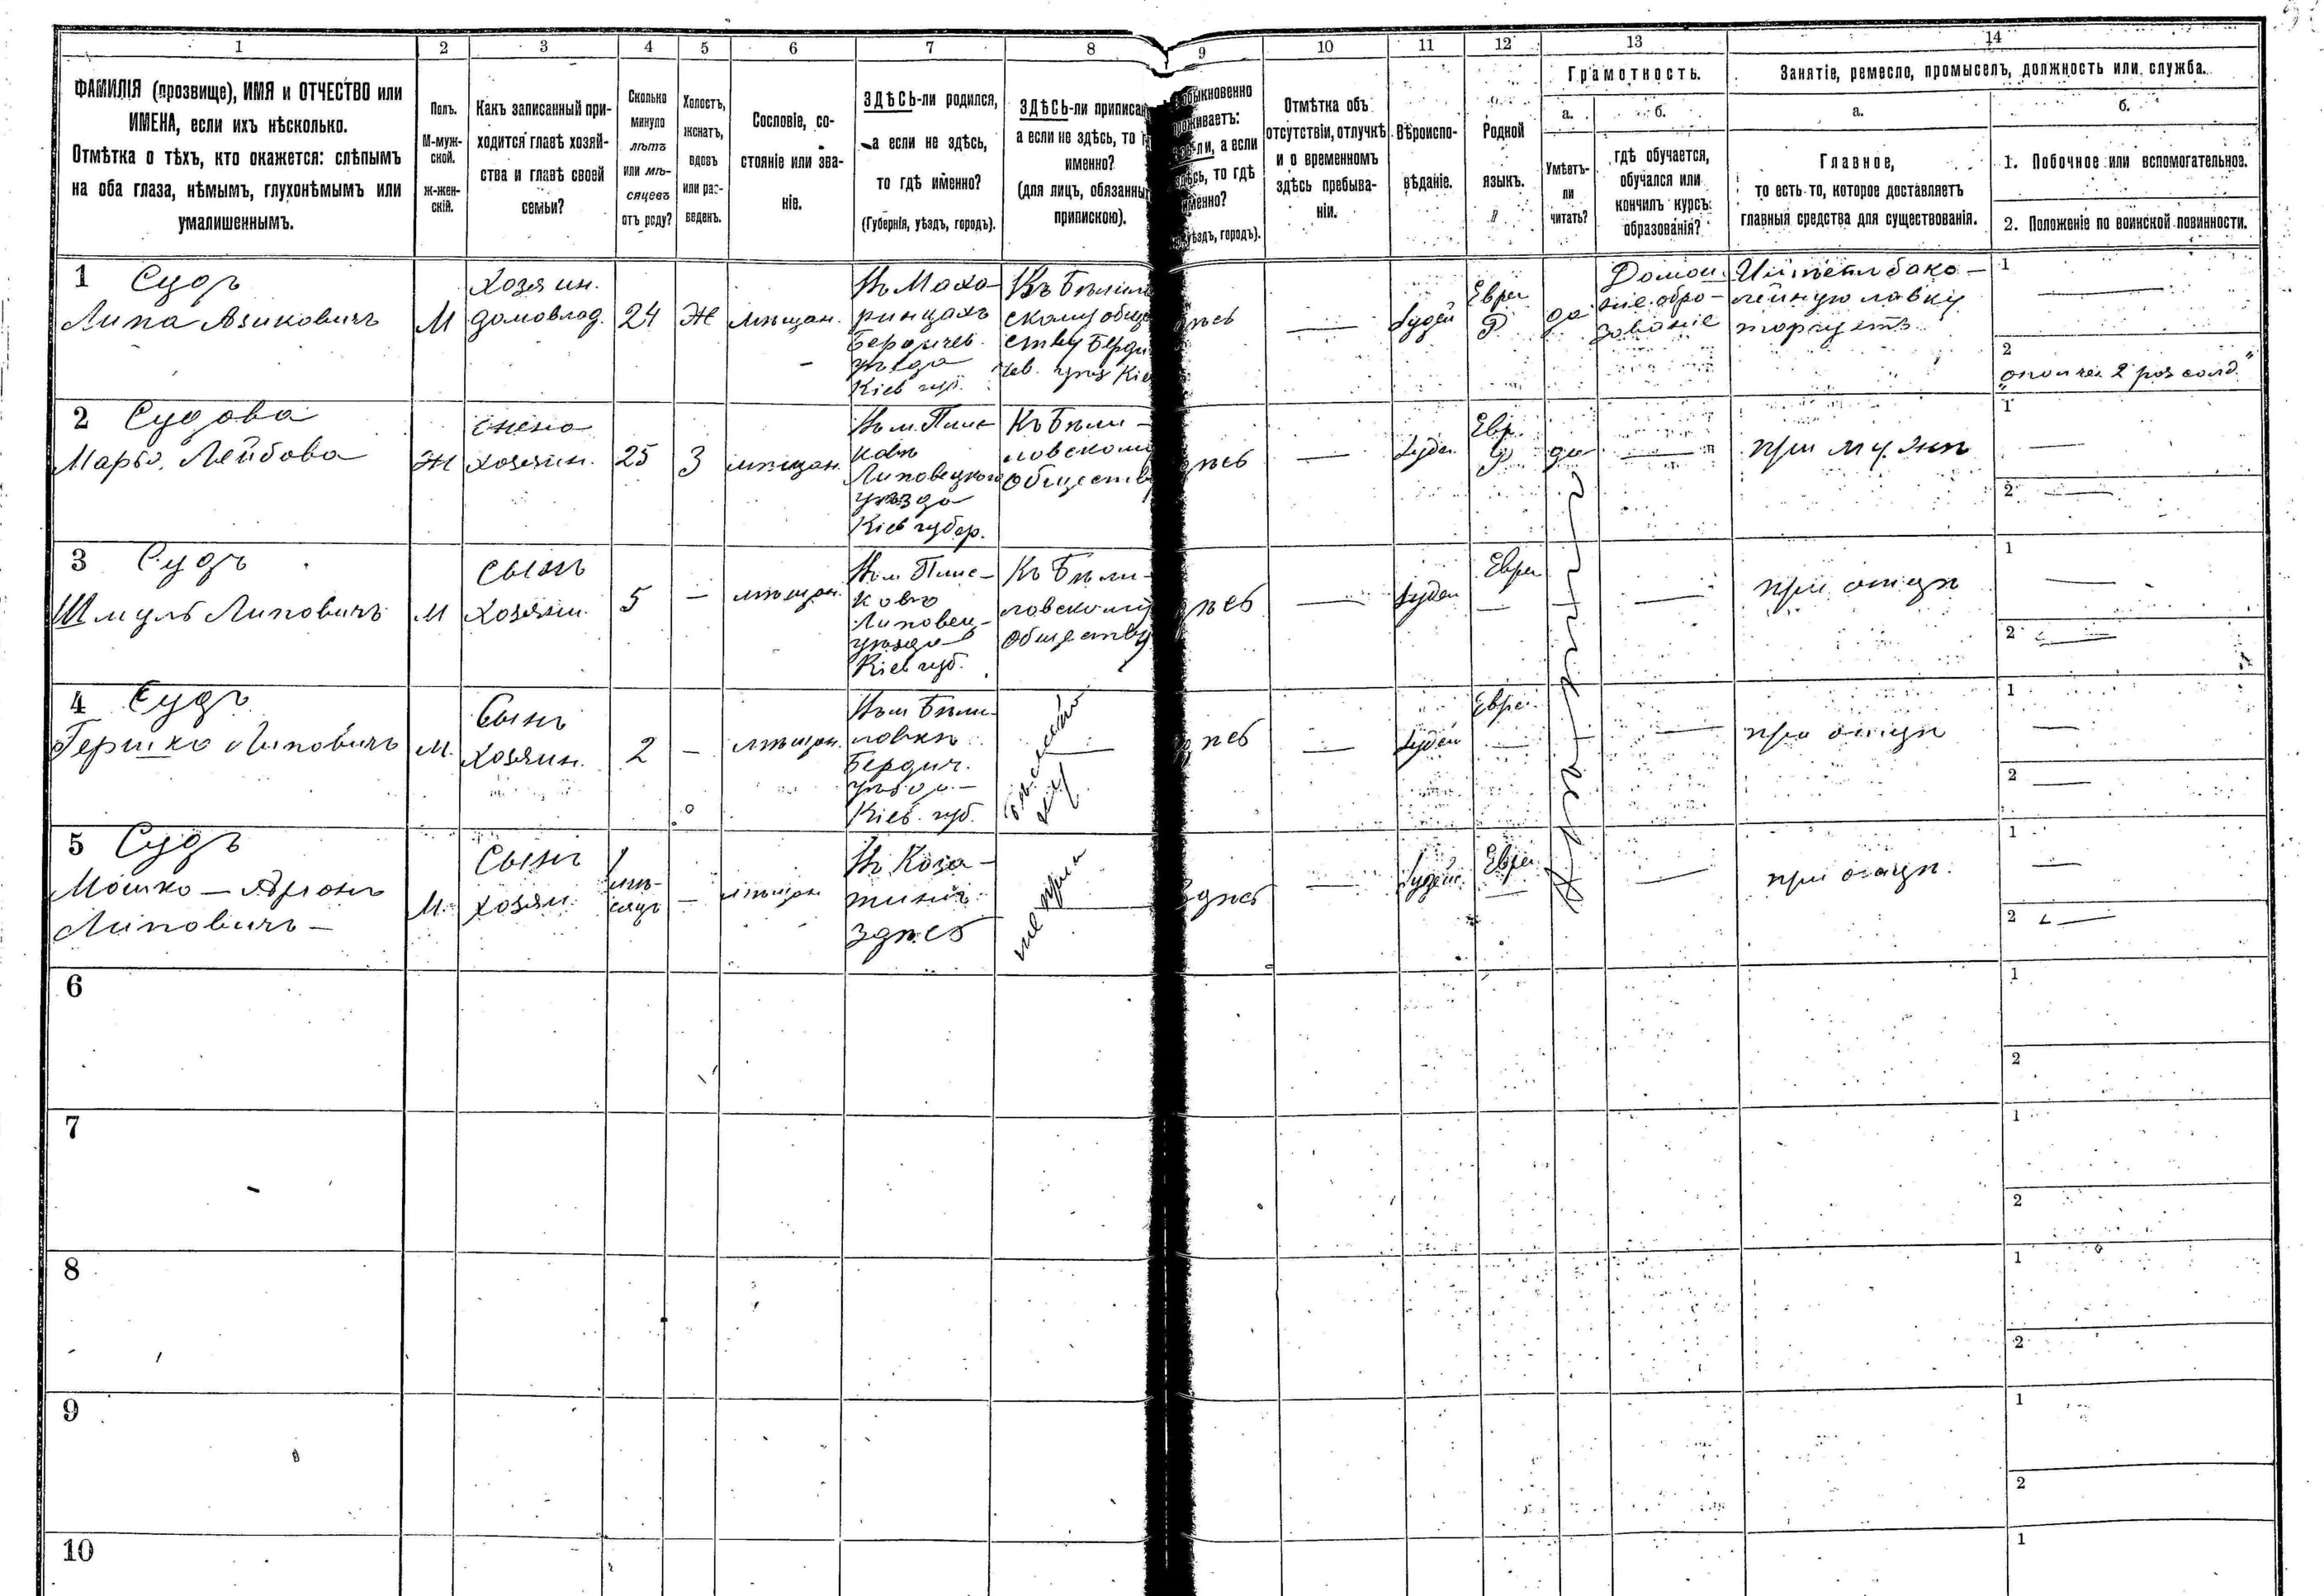 1 2 3 4 5 6 7 8 9 10 11 12 13 14
ФАМИЛІЯ (прозвище), ИМЯ и ОТЧЕСТВО или
ИМЕНА, если ихъ нѣсколько.
Отмѣтка о тѣхъ, кто окажется: слѣпымъ
на оба глаза, нѣмымъ, глухонѣмымъ или
умалишеннымъ.
Полъ.
М-муж-
ской.
Ж-жен-
скій.
Какъ записанный при-
ходится главѣ хозяй-
ства и главѣ своей
семьи?
Сколько
минуло
лѣтъ
или мѣ-
сяцевъ
отъ роду?
Холостъ,
женатъ,
вдовъ
или раз-
веденъ.
Сословіе, со-
стояніе или зва-
ніе.
ЗДѢСЬ-ли родился,
а если не здѣсь,
то гдѣ именно?
(Губернія, уѣздъ, городъ).
ЗДѢСЬ-ли приписа
а если не здѣсь, то
именно?
(для лицъ, обязанны
припискою).
быкновенно
живаетъ:
ли, а если
сь, то гдѣ
менно?
ѣздъ, городъ).
Отмѣтка объ
отсутствіи, отлучкѣ
и о временномъ
здѣсь пребыва-
ніи.
Вѣроиспо-
вѣданіе.
Родной
языкъ.
Грамотность.
а.
Умѣетъ-
ли
читать?
б.
гдѣ обучается,
обучался или
кончилъ курсъ
образованія?
Занятіе, ремесло, промыселъ, должность или служба.
а.
Главное,
то есть то, которое доставляетъ
главныя средства для существованія.
б.
1. Побочное или вспомогательное.
2. Положеніе по воинской повинности.
1 Судъ
Липа Азиковичъ
М
Хозяин.
домовлад.
24
Ж
мѣщан.
Въ Маха-
ринцахъ
Бердичев.
уѣзда
Кіев губ.
Къ Бѣлил
скому обще
ству Берди
чев. уѣз Кіе
Іудей
Евре
да
Домаш
нее обра-
зованіе
Имѣетъ бака-
лейную лавку
торгуетъ
1
2
ополчен 2 раз
2 Судова
Марья Лейбова
Ж
жена
хозяин.
25
З
мѣщан.
Липовецкого
уѣзда
Кіев губер.
Къ Бѣли-
ловскому
обществ
Іудей
Евр.
да
при мужѣ
1
2
3 Судъ
Шмуль Липовичъ
М
сынъ
хозяин.
5
мѣщан.
Липовец-
уѣзда
Кіев губ.
Къ Бѣли-
ловскому
обществу
Іудей
Евре
при отцѣ
1
2
4 Судъ
Гершко Липовичъ
М.
Сынъ
хозяин.
2
мѣщан.
Въ м Бѣли-
ловкѣ
Бердич.
уѣзда
Кіев. губ.
Іудей
Евре.
при отцѣ
1
2
5 Судъ
Мошко-Аронъ
Липовичъ
М.
Сынъ
хозяи.
1
мѣ-
сяцъ
мѣщан
Въ Каза-
тинѣ
здѣсь
здѣсь
Іудей.
Евре.
при отцѣ.
1
2
6
1
2
7
1
2
8
1
2
9
1
2
10
1